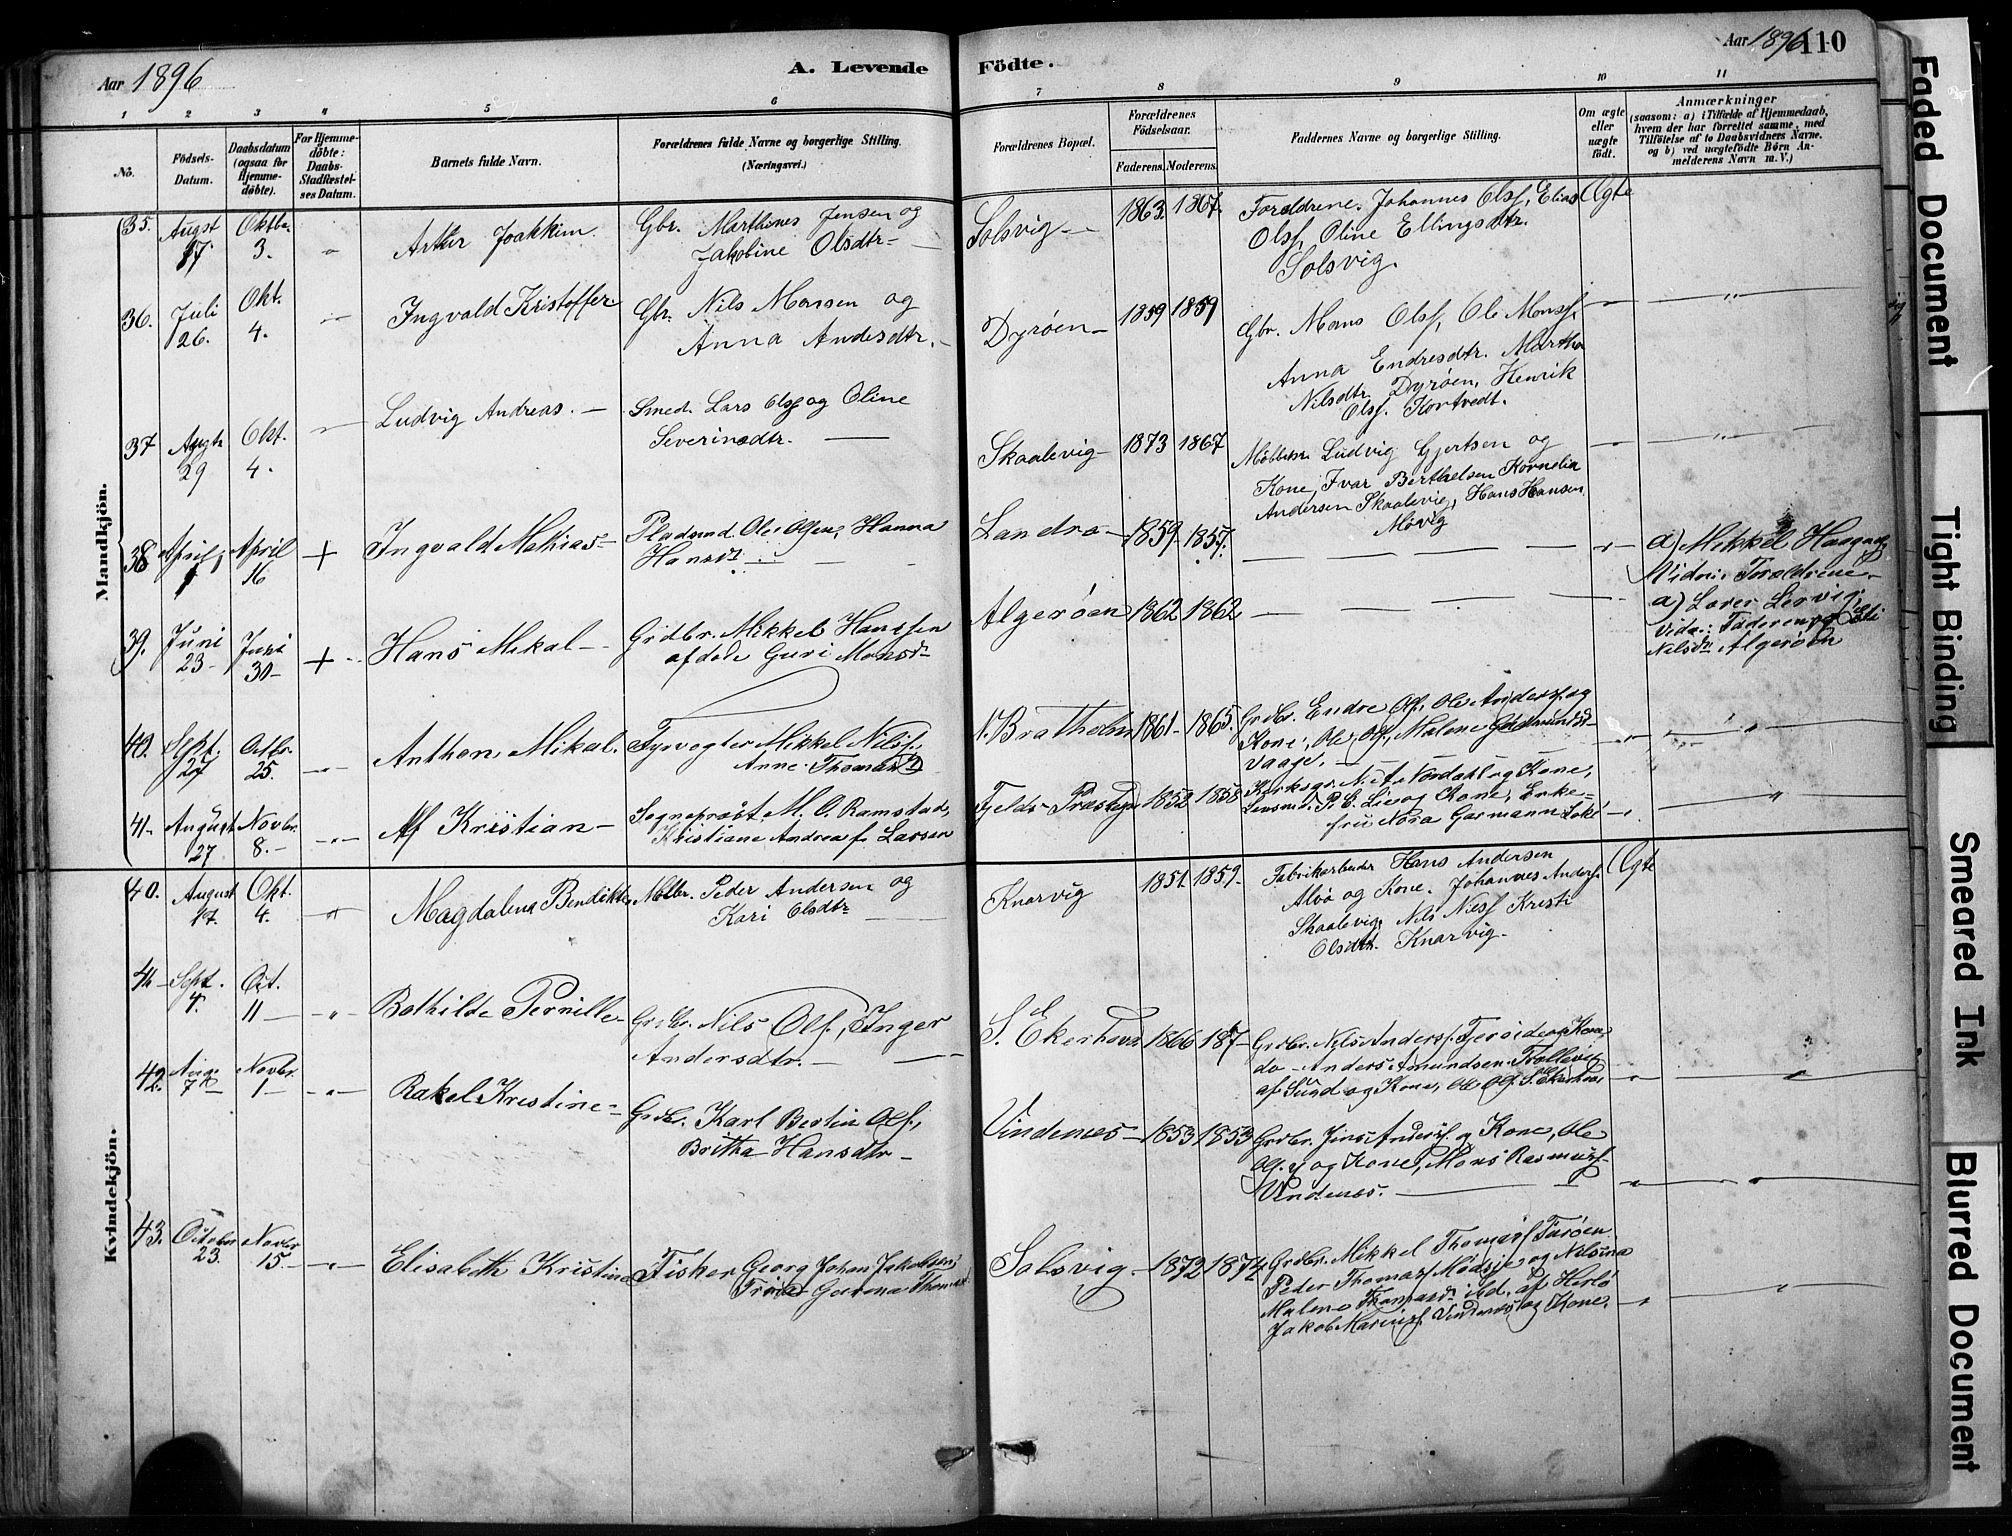 Aar 1896
A. Levende
Födte.
Aar 1896
110
1 2 3 4 5 6 7 8 9 10 11
No.
Födsels-
Datum.
Daabsdatum
(ogsaa for
Hjemme-
döbte).
For Hjemme-
döbte:
Daabs-
Stadfæstel-
ses Datum.
Barnets fulde Navn.
Forældrenes fulde Navne og borgerlige Stilling.
(Næringsvei.)
Forældrenes Bopæl.
Forældrenes
Födselsaar.
Faderens. Moderens.
Faddernes Navne og borgerlige Stilling.
Om ægte
eller
uægte
födt.
Anmærkninger
(saasom: a) i Tilfælde af Hjemmedaab,
hvem der har forrettet samme, med
Tilföielse af to Daabsvidners Navne,
og b) ved uægtefödte Børn An-
melderens Navn m. V.)
Mandkjön.
35. Augst 17. Oktbr. 3. " Artur Joakkim.
Gbr. Marthines Jensen og
Jakobine Olsdtr
Solsvig 1863. 1867.
Forældrene. Johannes Olsf, Elias
Olsf, Oline Ellingsdtr.
Solsvig.
Ægte
36. Juli 26. Okt. 4. " Ingvald Kristoffer
Gbr. Nils Monsen og
Anna Andersdtr.
Dyrøen 1859 1859
Gbr. Mons Olsf, Ole Monsf,
Anna Endresdtr. Martha
Nilsdtr Dyrøen, Henrik
Olsf. Kortvedt.
"
37 Augts 29 Okt. 4. " Ludvig Andreas.
Smed. Lars Olsf og Oline
Severinsdtr.
Skaalevig 1873 1867
Ludvig Gjertsen og
Kone, Ivar Berthelsen Kornelia
Andersen Skaalevig, Hans Hansen
Møvig
"
38 April 1 April 16 + Ingvald Mathias
Pladsmd. Ole Olsen, Hanna
Hansdr
Landro 1859 1857.
"
a) Mikkel Haagens
Vidner: Forældrene
39. Juni 23 Juni 30 + Hans Mikal
Grdbr. Mikkel Hanssen
afdøde Guri Monsdr
Algerøen 1862 1862
a) Lars Lervig
Vidn: Faderen og Eli
Nilsdr Algerøen
40. Sept. 27 Octbr. 25. " Anthon Mikal.
Fyrvogter Mikkel Nilsf.
Anne Thomasdr
N. Bratholm 1861 1865.
Grdbr. Endre Olsf, Ole Andersf. og
Kone, Ole Olsf, Malene Gudmundsdr
Vaage.
"
41 August 27 Novbr. 8. " Alf Kristian
Sogneprest M. O. Ramstad,
Kristiane Andrea f. Larsen
Fjelds Præstegd 1852 1858
Kirkesgr. N. A. Nordahl og Kone,
Lensmd. P. C. Lie og Kone, Enke-
fru Nora Garmann Loke
"
Kvindekjön.
40. August 17. Okt. 4. " Magdalena Bendikte
Peder Andersen og
Kari Olsdtr
Knarvig 1851. 1859.
Fabrikarbeidr Hans Andersen
Alvø og Kone. Johannes Andersf.
Skaalevig, Nils Nilsf Kristi
Olsdtr. Knarvig.
Ægte
41 Sept. 4. Oct. 11 " Bothilde Pernille
Grdbr. Nils Olsf., Inger
Andersdtr.
S. Ekerhovd 1866 187
Grdbr. Nils Andersf. og Kone,
do Anders Amundsen Trollevig
af Sund og Kone, Ole Olsf. S. Ekerhovd
"
42. Aug. 7 Novbr. 1 " Rakel Kristine
Grdbr. Karl Bertin Olsf.,
Britha Hansdtr
Vindenes 1853 1853
Grdbr. Jens Andersf. og Kone, Ole
Olsf. og Kone, Mons Rasmusf
Vindenes.
"
43. October 23. Novbr 15. " Elisabeth Kristine
Fisker Georg Johan Jakobsen
Gurina Thomasdr
Solsvig 1872 1874
Grdbr. Mikkel Thomasf Turøen
Peder Thomasf Mødsje og Nilsina
Malene Thomasdr af Herlø
Jakob Marinsf. Vindenes og Kone.
"
Faded Document
Tight Binding
Smeared Ink
Blurred Document